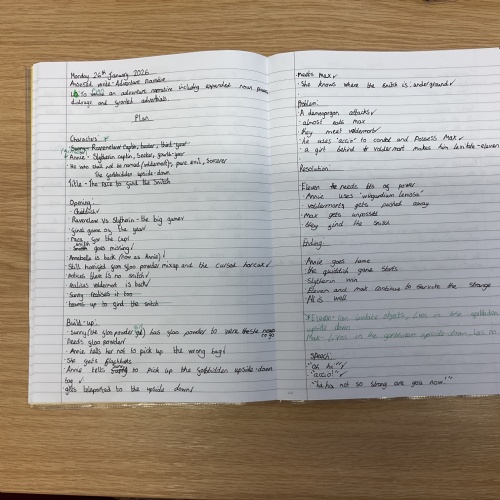 Monday 26th January 2026
Assessed write - Adventure narrative
To write an adventure narrative including expanded noun phrases,
dialouge and fronted adverbials.
Plan
Characters:
Sunny - Ravenclaw captin, beater, third-year
Annie - Slytherin captin, seeker, fourth-year
He who shall not be named (voldemort), pure evil, sorcerer
The forbidden upside-down
Title - The race to find the Snitch
Opening:
Quidditch
Ravenclaw Vs Slytherin - the big game
final game of the year
Race for the cup
goes missing
Annabelle is back (now as Annie)
Still horrified from floo powder mixup and the cursed haircut
notices there is no snitch
realises voldemort is back
Sunny realises it too
to find the snitch
Build-up:
Sunny (the floo powder) has floo powder to were
to go
Needs floo powder
Annie tells her not to pick up the wrong bag
She gets
Annie tells Sunny to pick up the forbidden upside-down
too
gets teleported to the upside down
meets Max
She knows where the snitch is: underground
Problem:
A demogorgon attacks
almost eats max
they meet voldemort
he uses 'accio' to control and possess Max
a girl behind voldemort makes him levitate - eleven
Resolution
Eleven needs lots of power
Annie uses 'wingardium leviosa'
voldermort gets pushed away
Max gets unpossess
they find the snitch
Ending
Annie goes home
the quidditch game starts
Slytherin win
Eleven and max continue to survive the strange
All is well
*Eleven - can levitate objects, lives in the forbidden
upside down
Max - lives in the forbidden upside down, has no
Speech:
"Oh no!"
"accio!"
"ha ha not so strong are you now!"